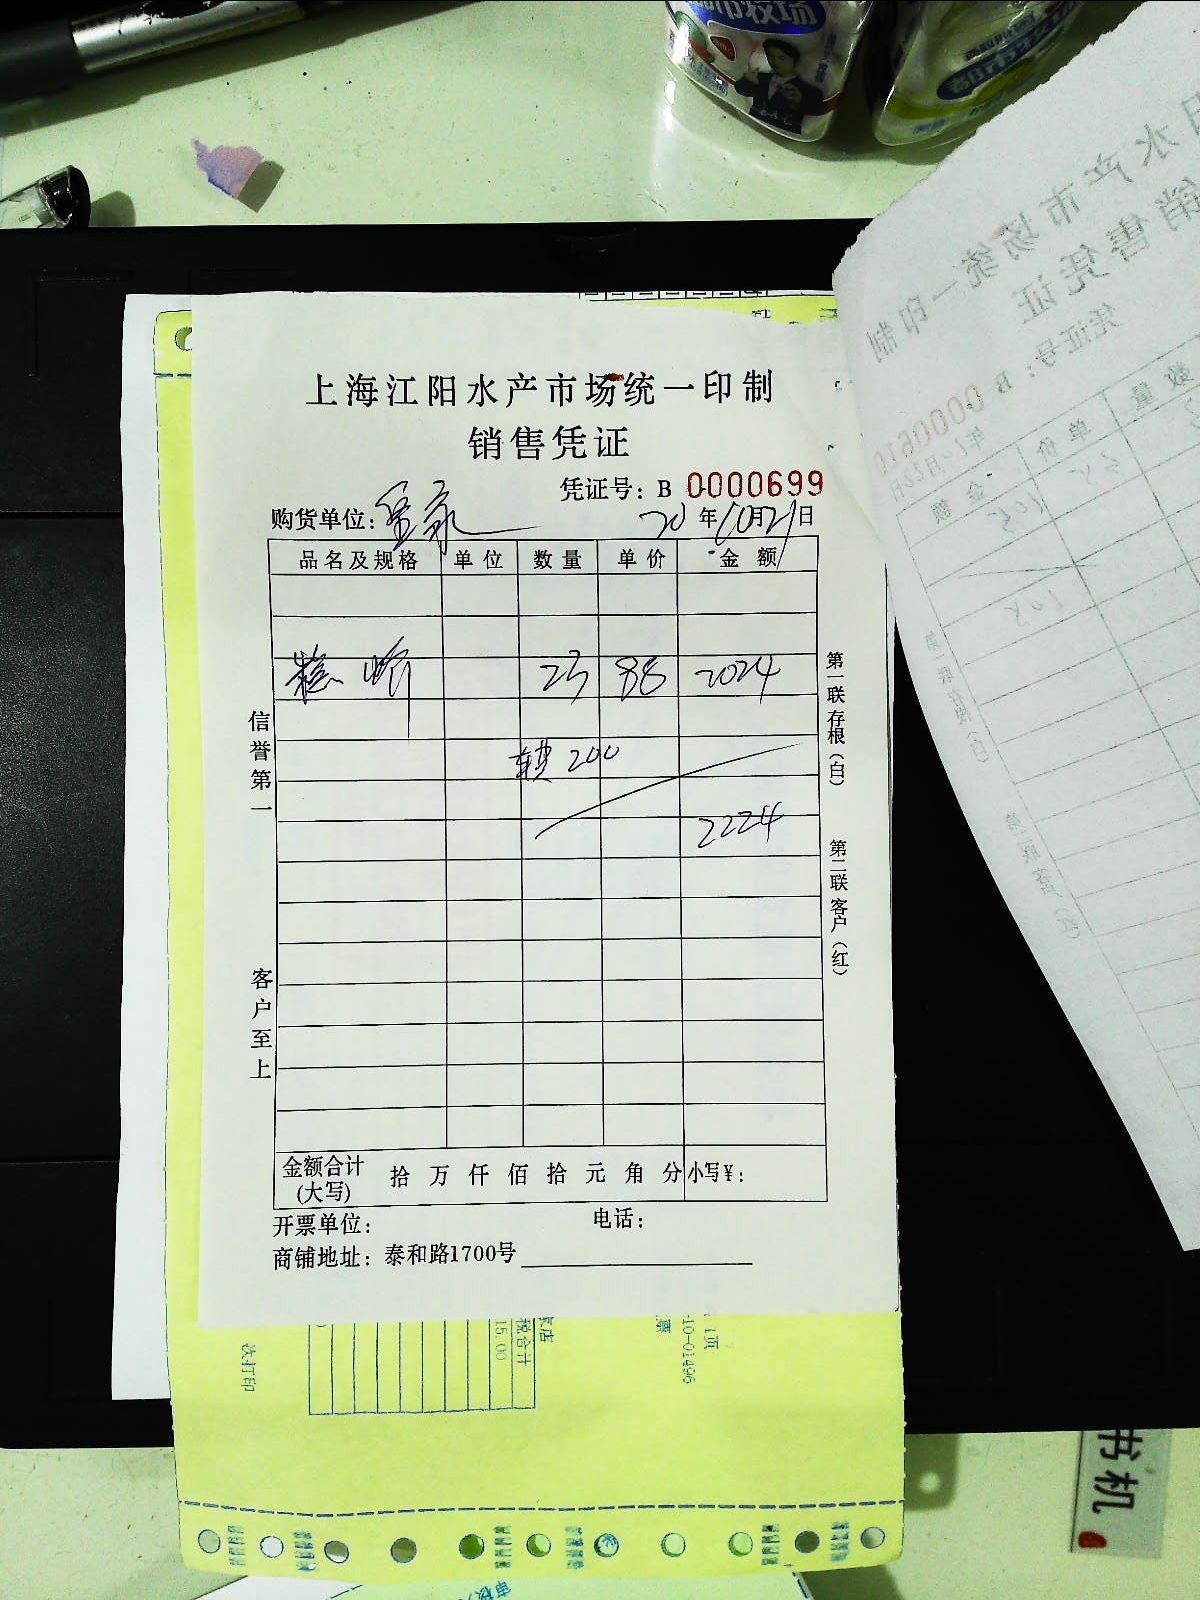 都市牧场
都市牧场
上海江阳水产市场统一印制
销售凭证
凭证号：B 0000699
购货单位： 20年10月21日
品名及规格 单位 数量 单价 金额
23 88 2024
200
2224
信誉第一
客户至上
第一联存根（白）
第二联客户（红）
金额合计
(大写) 拾 万 仟 佰 拾 元 角 分 小写￥：
开票单位： 电话：
商铺地址：泰和路1700号
江阳水产市场统一印制
销售凭证
凭证号：B 0000610
数量 单价 金额
15.00
税合计
-10-01496
次打印
书机
审核